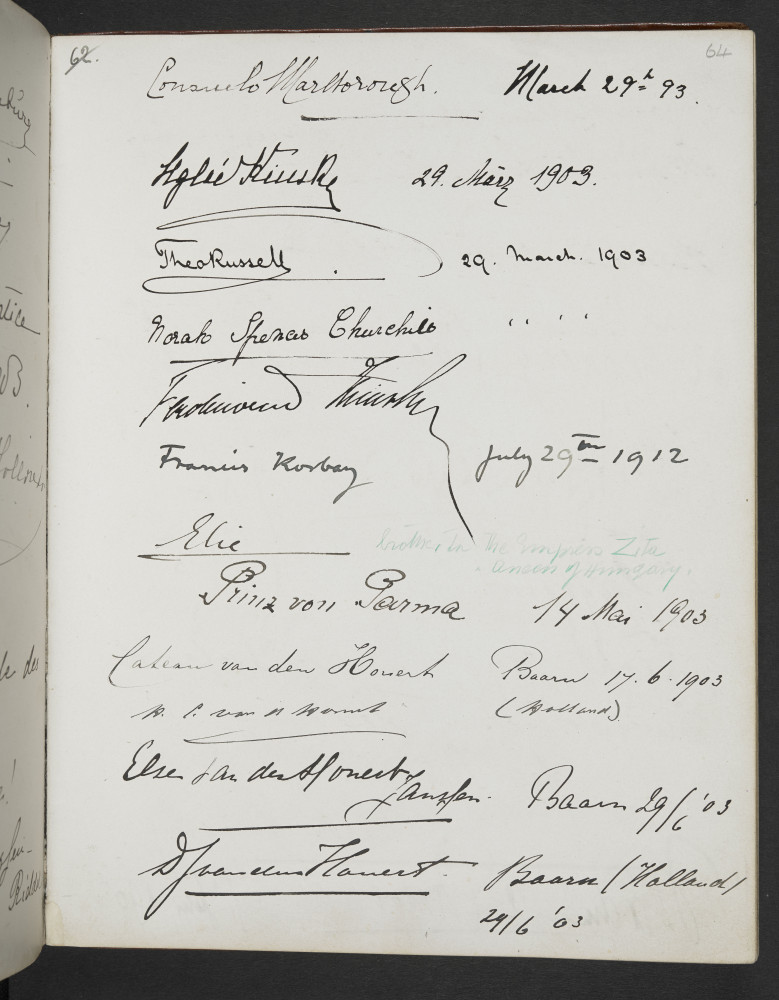 62.
64
Consuelo Marlborough. March 29th 93.
Kinsky 29. März 1903.
Theo Russell 29. March. 1903
Norah Spencer Churchill " "
Ferdinand Kinsky
Francis Korbay July 29th 1912
Elie
brother to the Empress Zita
Queen of Hungary.
Prinz von Parma 14 Mai 1903
Cateau van den Honert Baarn 17.6.1903
(Holland)
Else van den Honert
Janssen. Baarn 29/6 '03
van den Honert. Baarn (Holland)
29/6 '03